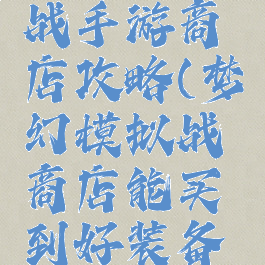 战手游商
店攻略(梦
幻模拟战
商店能买
到好装备